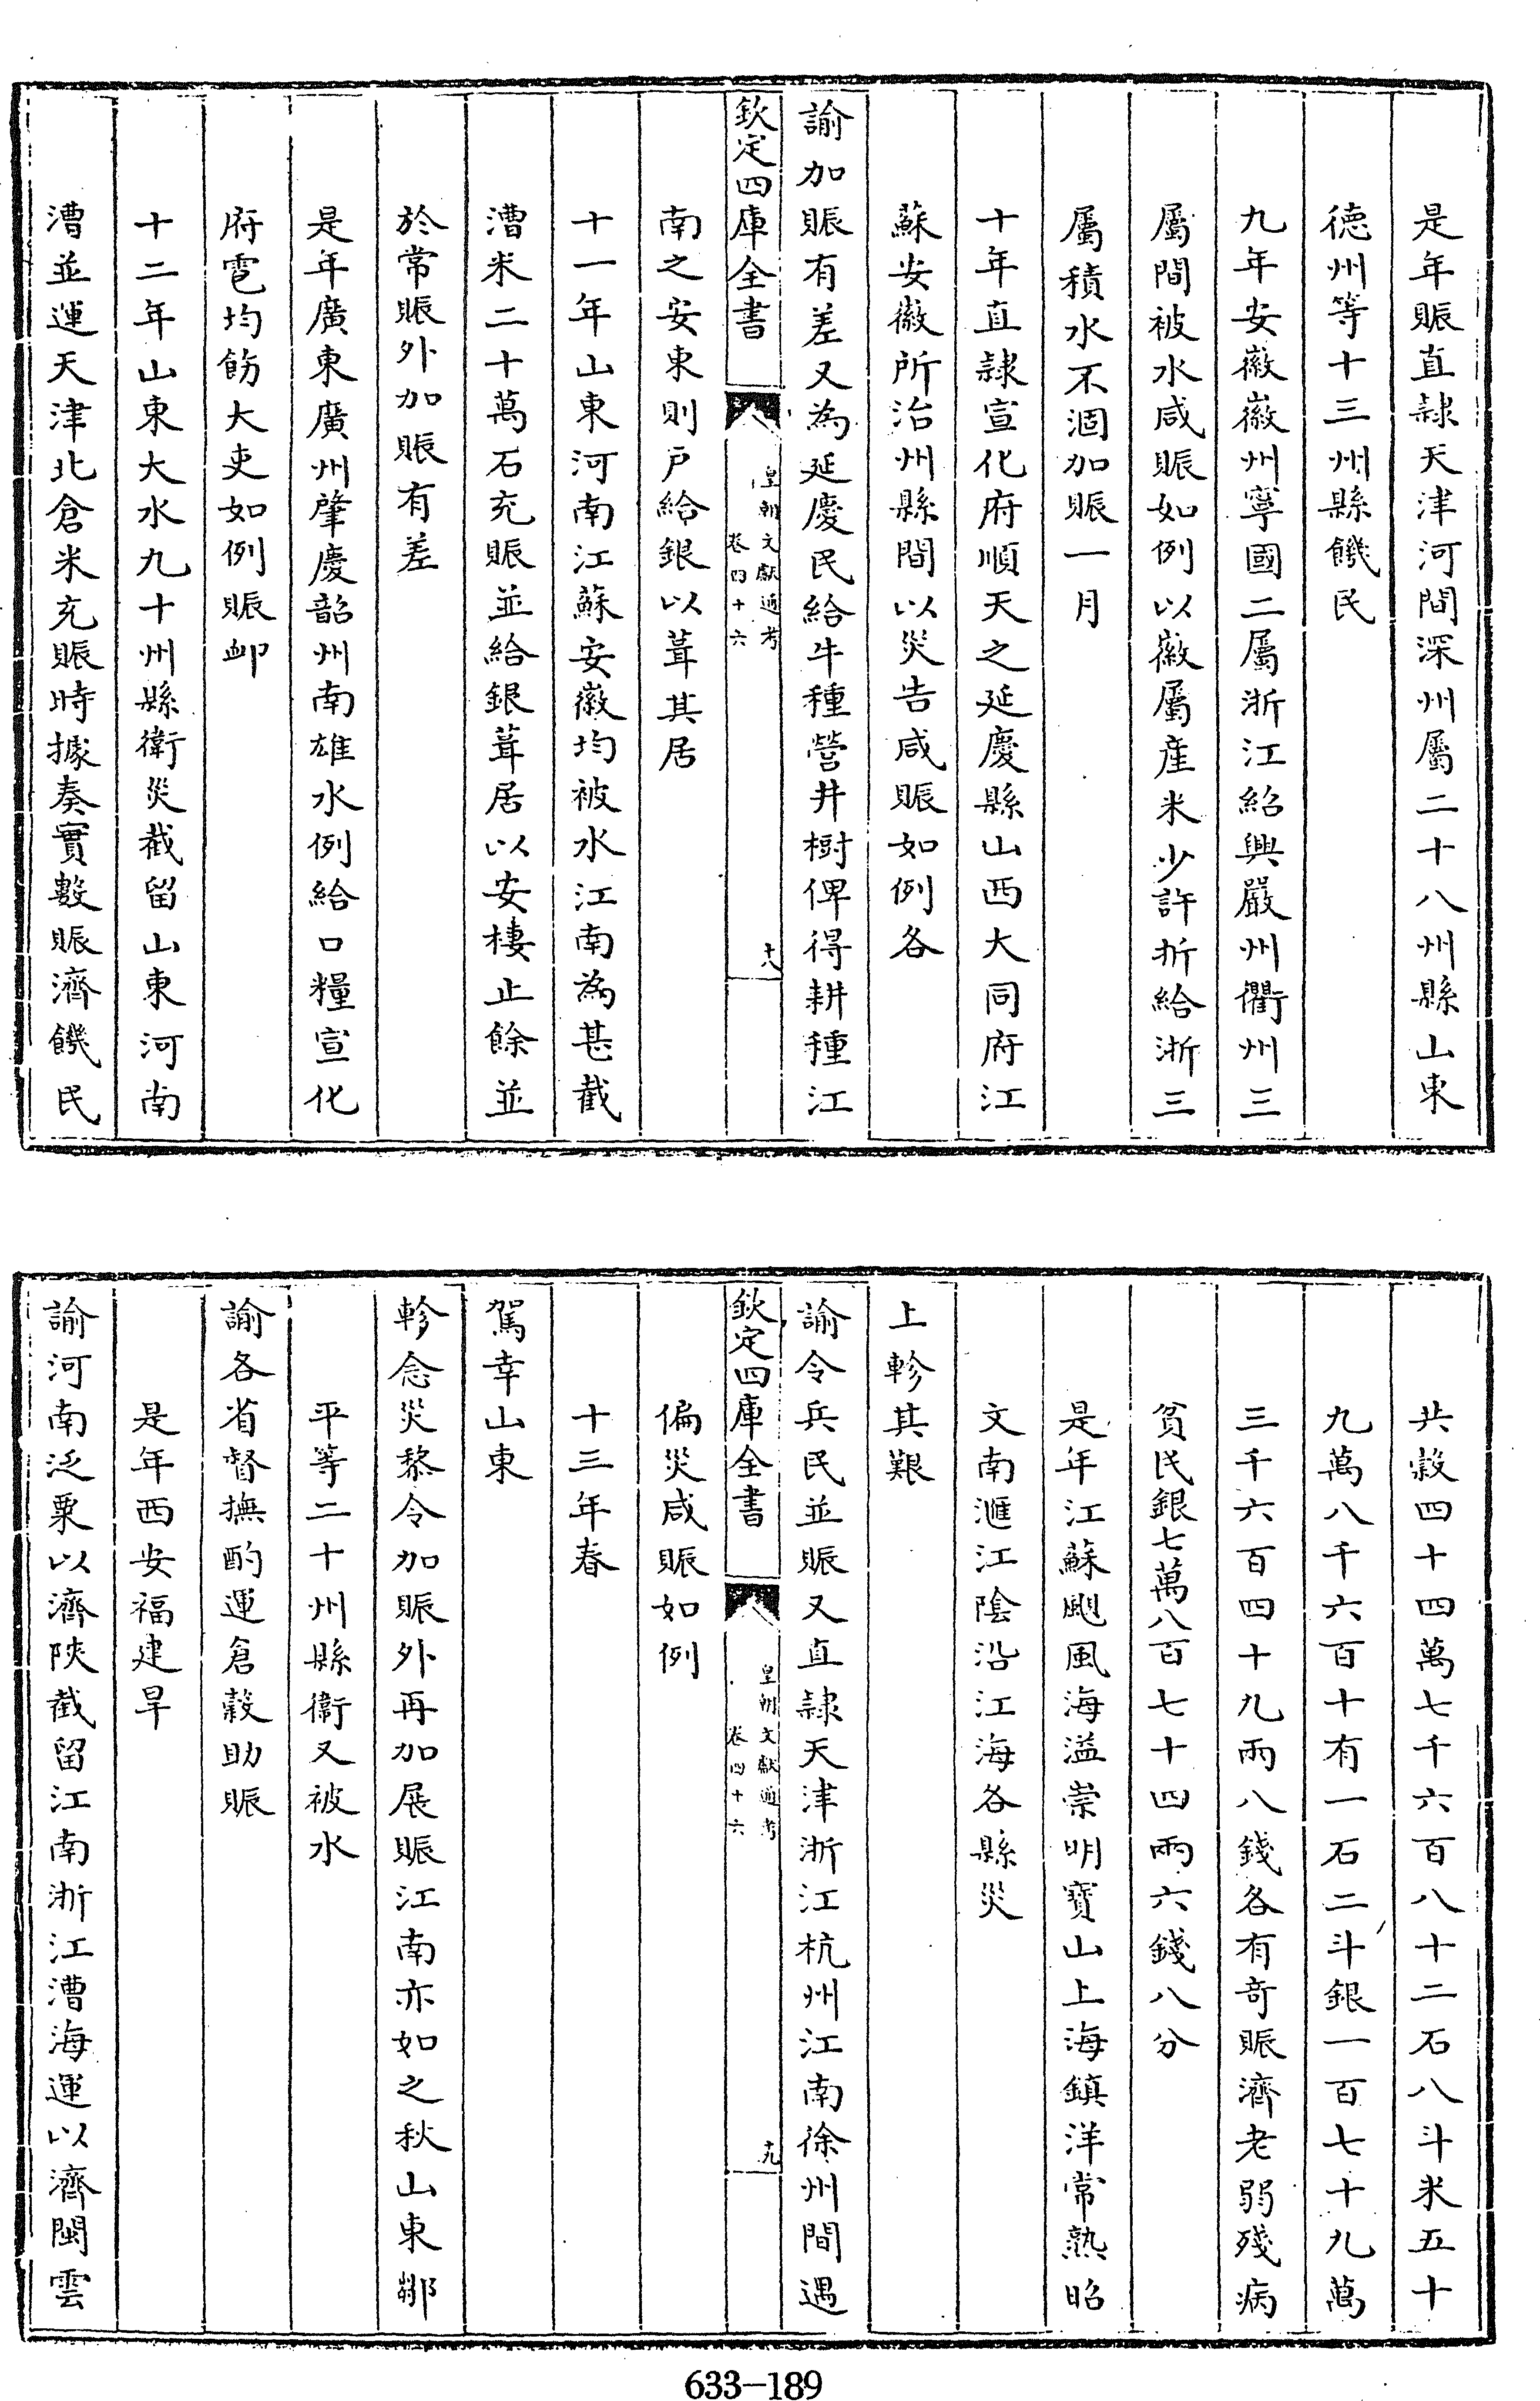 是年賑直隸天津河間深州屬二十八州縣山東
徳州等十三州縣饑民
九年安徽徽州寧國二屬浙江紹興嚴州衢州三
屬間被水咸賑如例以徽屬産米少許折給浙三
屬積水不涸加賑一月
十年直隸宣化府順天之延慶縣山西大同府江
蘇安徽所治州縣間以災告咸賑如例各
諭加賑有差又為延慶民給牛種營井樹俾得耕種江
欽定四庫全書
皇朝文獻通考
卷四十六
十八
南之安東則戸給銀以葺其居
十一年山東河南江蘇安徽均被水江南為甚截
漕米二十萬石充賑並給銀葺居以安棲止餘並
於常賑外加賑有差
是年廣東廣州肇慶韶州南雄水例給口糧宣化
府雹均飭大吏如例賑卹
十二年山東大水九十州縣衛災截留山東河南
漕並運天津北倉米充賑時據奏實數賑濟饑民
共榖四十四萬七千六百八十二石八斗米五十
九萬八千六百十有一石二斗銀一百七十九萬
三千六百四十九兩八錢各有奇賑濟老弱殘病
貧民銀七萬八百七十四兩六錢八分
是年江蘇颶風海溢崇明寶山上海鎮洋常熟昭
文南滙江陰沿江海各縣災
上軫其艱
諭令兵民並賑又直隸天津浙江杭州江南徐州間遇
欽定四庫全書
皇朝文獻通考
卷四十六
十九
偏災咸賑如例
十三年春
駕幸山東
軫念災黎令加賑外再加展賑江南亦如之秋山東鄒
平等二十州縣衛又被水
諭各省督撫酌運倉穀助賑
是年西安福建旱
諭河南泛粟以濟陜截留江南浙江漕海運以濟閩雲
633-189